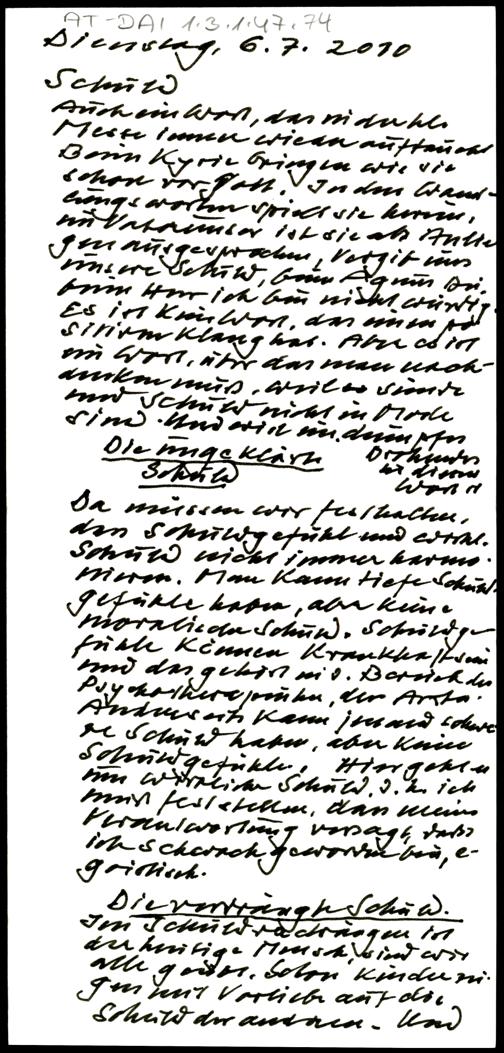 AT-DAI 1.3.1.47.74
Dienstag, 6.7. 2010
Schuld
Auch ein Wort, das in der hl.
Messe immer wieder auftaucht
Beim Kyrie bringen wir sie
schon vor Gott. In den Wand-
lungsworten spielt sie herein,
im Vaterunser ist sie als Anlie
gen ausgesprochen, Vergib uns
unsere Schuld, beim Agnus Dei,
beim Herr ich bin nicht würdig.
Es ist kein Wort, das einen po
sitiven Klang hat. Aber es ist
ein Wort, über das man nach-
denken muß, weil es Sünde
und Schuld nicht in Mode
sind. Und wird im dumpfes
Drohendes
in diesem
Wort
Die ungeklärte
Schuld
Da müssen wir festhalten,
dass Schuldgefühl und wirkl.
Schuld nicht immer harmo-
nieren. Man kann tiefe Schuld-
gefühle haben, aber keine
moralische Schuld. Schuldge
fühle können krankhaft sein
und das gehört ins Bereich der
Psychotherapeuten, der Ärzte.
Anderseits kann jemand schwe
re Schuld haben, aber keine
Schuldgefühle. Hier geht es
um wirkliche Schuld, d.h. ich
muß feststellen, dass meine
Verantwortung versagt, daß
ich schwach geworden bin, e-
goistisch.
Die verdrängte Schuld.
Im Schuldverdrängen ist
der heutige Mensch, sind wir
alle groß. Schon Kinder zei-
gen mit Vorliebe auf die
Schuld der anderen. Und